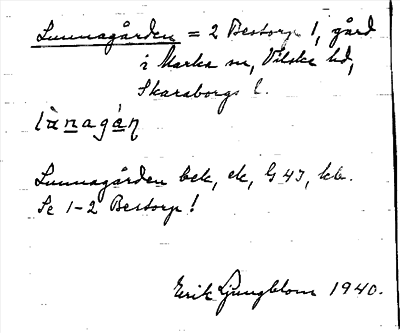 Lunnagården = 2 Bestorp 1, gård
i Marka sn, Vilske hd,
Skaraborgs l.
lànagáɳ
Lunnagården bek, ek, G 47, kb.
Se 1-2 Bestorp!
Erik Ljungblom 1940.